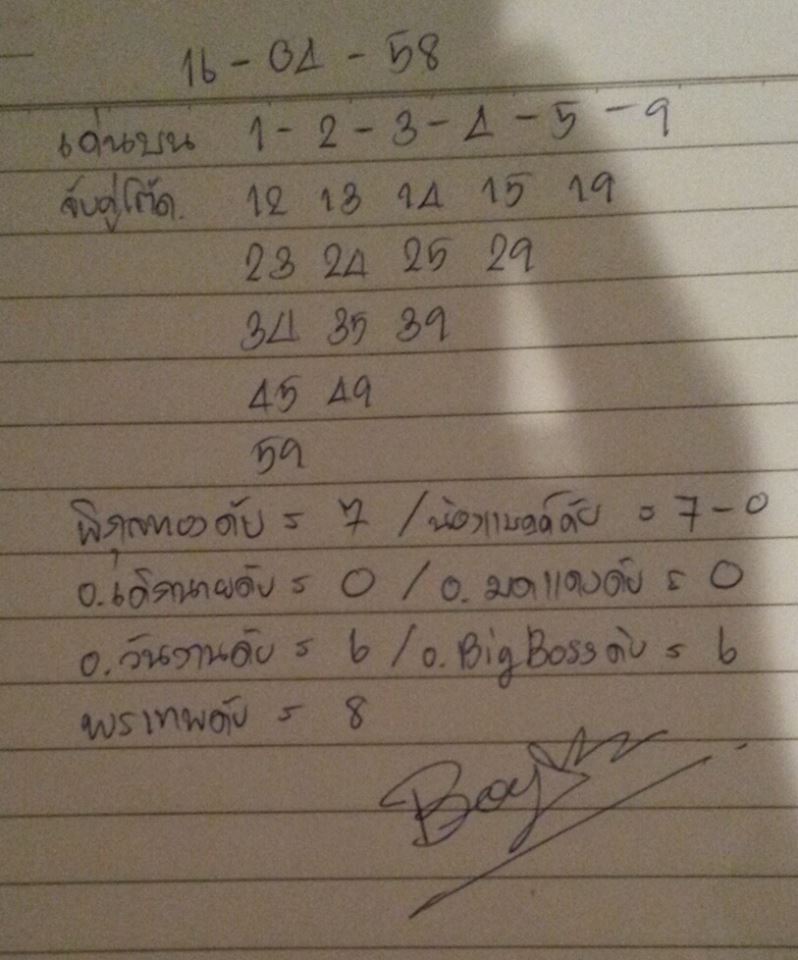 16 - 04 - 58
เด่นบน 1 - 2 - 3 - 4 - 5 - 9
จับคู่โต๊ด. 12 13 14 15 19
23 24 25 29
34 35 39
45 49
59
พิกุลทองดับ = 7 / น้องแบงค์ดับ = 7 - 0
อ.เดินายดับ = 0 / อ. มดแดงดับ = 0
อ.วันงานดับ = 6 / อ. Big Boss ดับ = 6
พรเทพดับ = 8
Boy